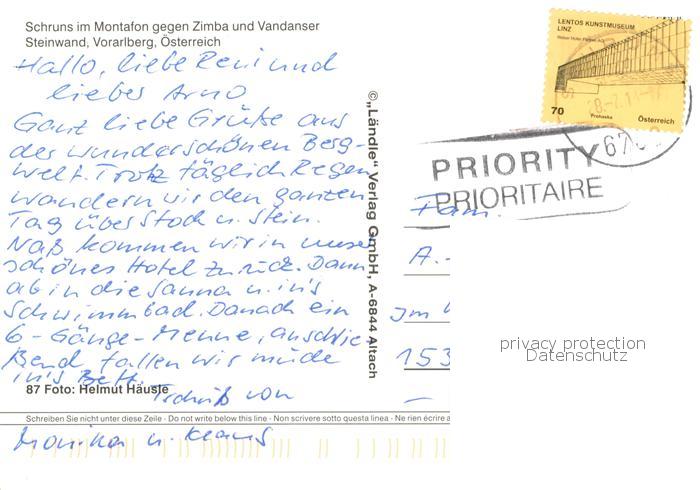 Schruns im Montafon gegen Zimba und Vandanser
Steinwand, Vorarlberg, Österreich
Hallo, liebe Reni und
liebes Arno
Ganz liebe Grüße aus
der wunderschönen Berg-
welt. Trotz täglich Regen
wandern wir den ganzen
Tag über Stock u. Stein.
Naß kommen wir in unser
schönes Hotel zurück. Dann
ab in die Sauna u. in's
Schwimmbad. Danach ein
6-Gänge-Menue, anschlie-
ßend fallen wir müde
in's Bett.
87 Foto: Helmut Häusle
Tschüß von
Schreiben Sie nicht unter diese Zeile - Do not write below this line - Non scrivere sotto questa linea - Ne rien écrire a
Monika u. Klaus
©„Ländle“ Verlag GmbH, A-6844 Altach
LENTOS KUNSTMUSEUM
LINZ
70
Prohaska
Österreich
PRIORITY
PRIORITAIRE
Fam.
A.-
Im
153
privacy protection
Datenschutz